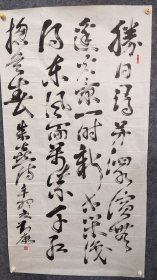 勝日尋芳泗水濱無
邊光景一時新等閒識
得東風面萬紫千紅
總是春 朱熹詩